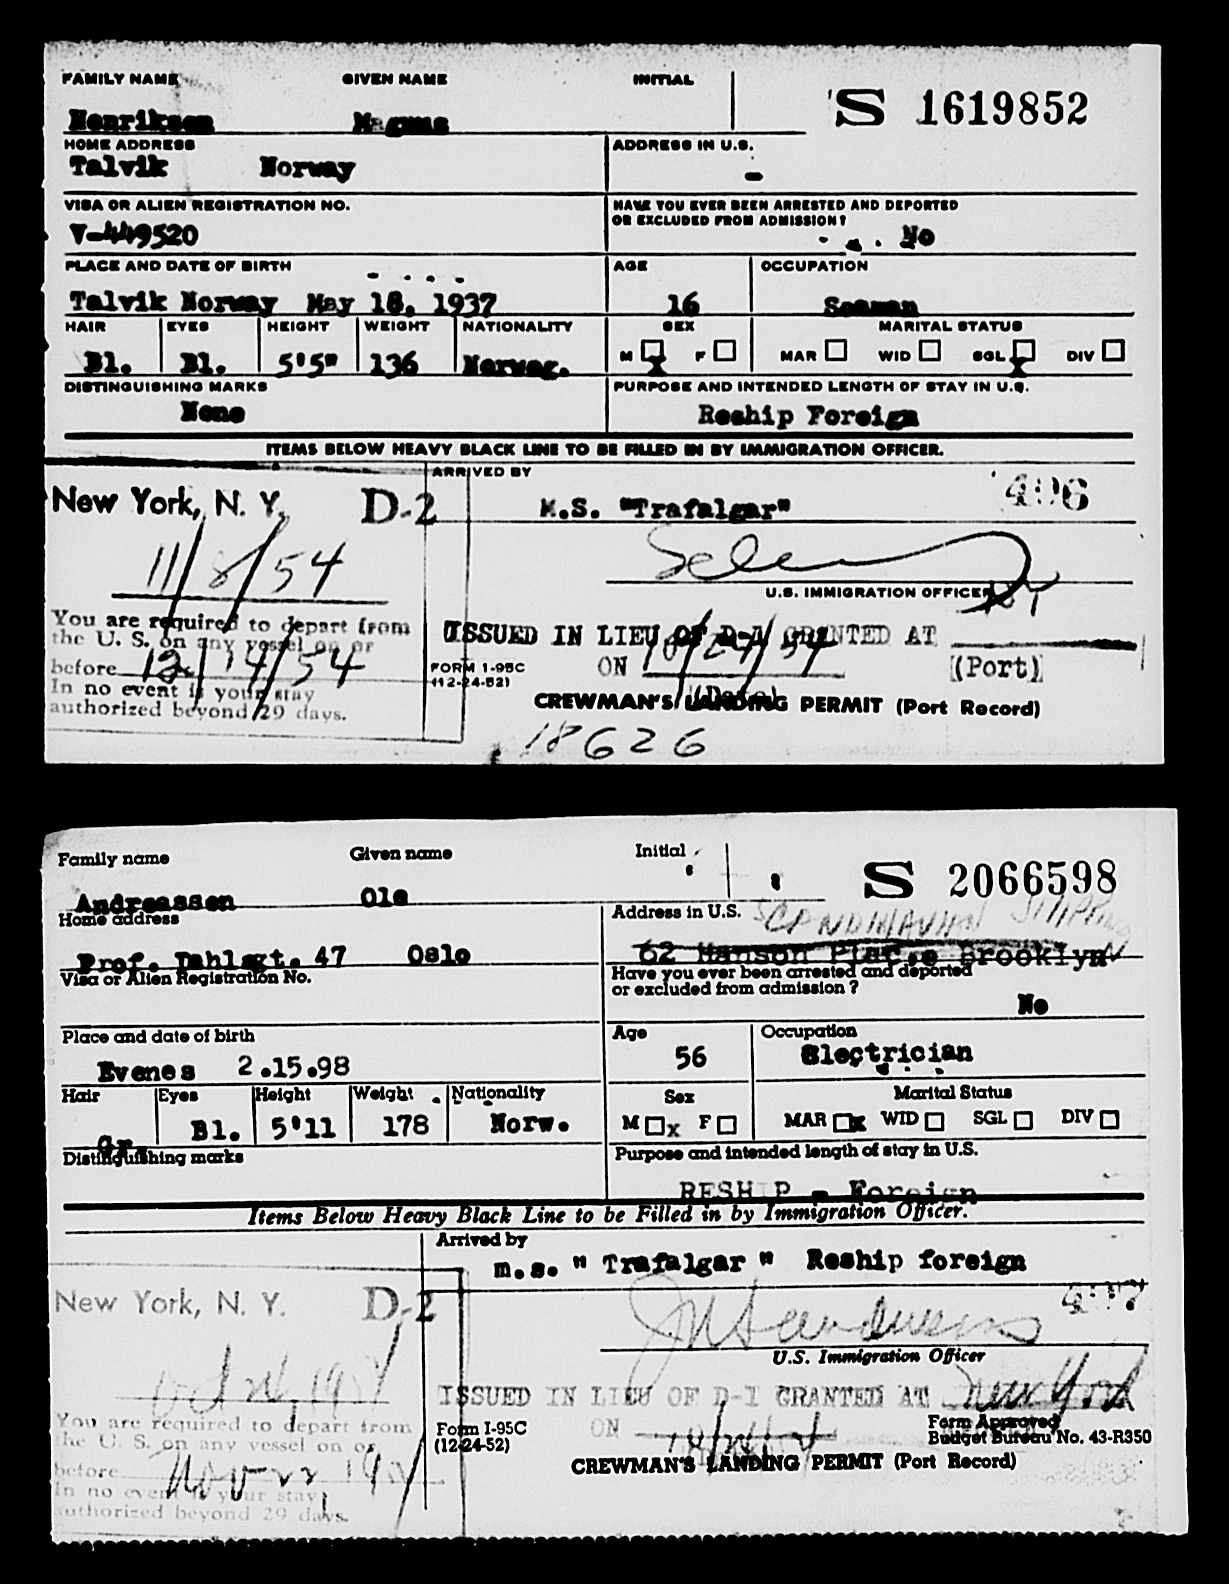 FAMILY NAME GIVEN NAME INITIAL
S 1619852
Henriksen Magnus
HOME ADDRESS ADDRESS IN U.S.
Talvik Norway -
VISA OR ALIEN REGISTRATION NO. HAVE YOU EVER BEEN ARRESTED AND DEPORTED
OR EXCLUDED FROM ADMISSION?
V-449520 No
PLACE AND DATE OF BIRTH AGE OCCUPATION
Talvik Norway May 18, 1937 16 Seaman
HAIR EYES HEIGHT WEIGHT NATIONALITY SEX MARITAL STATUS
M X F MAR WID SGL X DIV
Bl. Bl. 5'5" 136 Norweg.
DISTINGUISHING MARKS PURPOSE AND INTENDED LENGTH OF STAY IN U.S.
None Reship Foreign
ITEMS BELOW HEAVY BLACK LINE TO BE FILLED IN BY IMMIGRATION OFFICER.
ARRIVED BY
New York, N. Y. D-2 M.S. "Trafalgar" 496
11/8/54
U.S. IMMIGRATION OFFICER
You are required to depart from
the U. S. on any vessel on or
before 12/14/54
In no event is your stay
authorized beyond 29 days.
ISSUED IN LIEU OF D-1 GRANTED AT
ON 10/24/54 (Port)
(Date)
FORM I-95C
(12-24-52)
CREWMAN'S LANDING PERMIT (Port Record)
18626
Family name Given name Initial
S 2066598
Andreassen Ole
Home address Address in U.S. SCANDINAVIAN SHIPPING
Prof. Dahlsgt. 47 Oslo 62 Hanson Place Brooklyn
Visa or Alien Registration No. Have you ever been arrested and deported
or excluded from admission?
No
Place and date of birth Age Occupation
Evenes 2.15.98 56 Electrician
Hair Eyes Height Weight Nationality Sex Marital Status
Gr. Bl. 5'11 178 Norw. M x F MAR x WID SGL DIV
Distinguishing marks Purpose and intended length of stay in U.S.
RESHIP - Foreign
Items Below Heavy Black Line to be Filled in by Immigration Officer.
Arrived by
m.s. " Trafalgar " Reship foreign
New York, N. Y. D-2 497
U.S. Immigration Officer
You are required to depart from
the U. S. on any vessel on or
before Nov
In no event is your stay
authorized beyond 29 days.
ISSUED IN LIEU OF D-1 GRANTED AT New York
ON
Form I-95C
(12-24-52)
Form Approved
Budget Bureau No. 43-R350
CREWMAN'S LANDING PERMIT (Port Record)